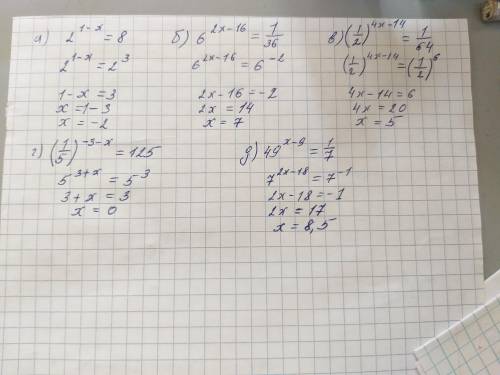 а) 2^{1-x} = 8
2^{1-x} = 2^3
1-x = 3
x = 1-3
x = -2
б) 6^{2x-16} = 1/36
6^{2x-16} = 6^{-2}
2x-16 = -2
2x = 14
x = 7
в) (1/2)^{4x-14} = 1/64
(1/2)^{4x-14} = (1/2)^6
4x-14 = 6
4x = 20
x = 5
г) (1/5)^{-3-x} = 125
5^{3+x} = 5^3
3+x = 3
x = 0
д) 49^{x-9} = 1/7
7^{2x-18} = 7^{-1}
2x-18 = -1
2x = 17
x = 8,5